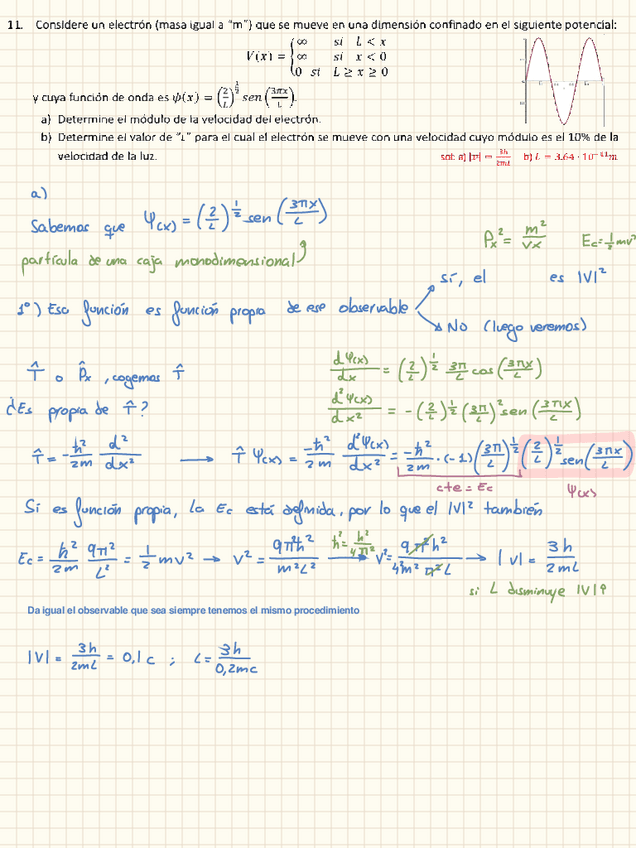 11. Considere un electrón (masa igual a "m") que se mueve en una dimensión confinado en el siguiente potencial:
V(x) = { ∞ si L < x
∞ si x < 0
0 si L ≥ x ≥ 0
y cuya función de onda es ψ(x) = (2/L)^(1/2) sen(3πx/L).
a) Determine el módulo de la velocidad del electrón.
b) Determine el valor de "L" para el cual el electrón se mueve con una velocidad cuyo módulo es el 10% de la
velocidad de la luz.
sol: a) |v| = 3h/2mL b) L = 3.64 · 10⁻¹¹ m
a)
Sabemos que Ψ(x) = (2/L)^(1/2) sen(3πx/L)
partícula de una caja monodimensional
Px² = m²/vx Ec = 1/2 mv²
1º) Esa función es función propia de ese observable
sí, el es |V|²
No (luego veremos)
T̂ o P̂x, cogemos T̂
¿Es propia de T̂?
dΨ(x)/dx = (2/L)^(1/2) 3π/L cos(3πx/L)
d²Ψ(x)/dx² = -(2/L)^(1/2) (3π/L)² sen(3πx/L)
T̂ = -ħ²/2m d²/dx² → T̂ Ψ(x) = -ħ²/2m d²Ψ(x)/dx² = -ħ²/2m · (-1) (3π/L)^(1/2) (2/L)^(1/2) sen(3πx/L)
cte = Ec Ψ(x)
Sí es función propia, la Ec está definida, por lo que el |V|² también
Ec = ħ²/2m 9π²/L² = 1/2 mv² → v² = 9π²ħ²/m²L² ħ² = h²/4π² → v² = 9π²h²/4m²π²L → |v| = 3h/2mL
si L disminuye |V|↑
Da igual el observable que sea siempre tenemos el mismo procedimiento
|V| = 3h/2mL = 0,1c ; L = 3h/0,2mc